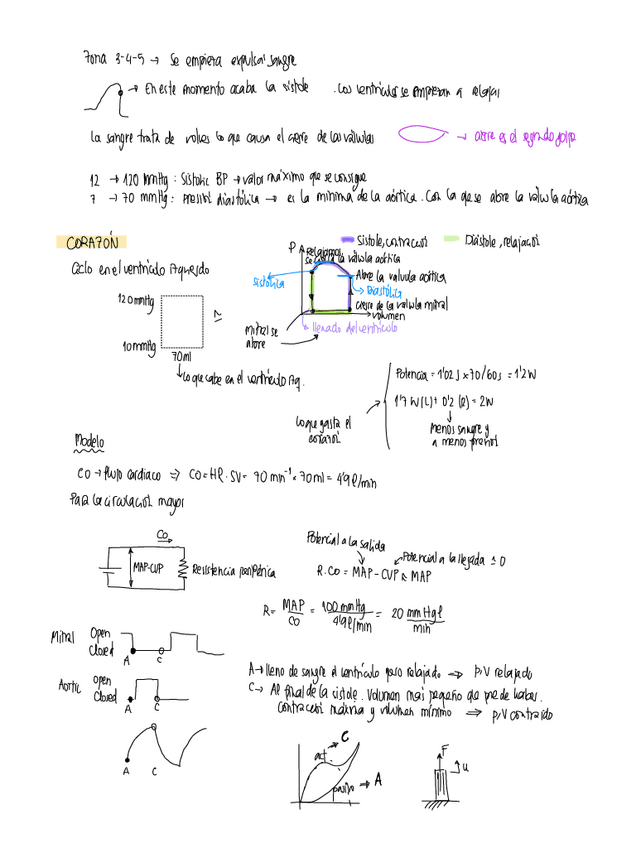 Zona 3-4-5 → Se empieza expulsar sangre
→ En este momento acaba la sístole. Los ventrículos se empiezan a relajar
La sangre trata de volver lo que causa el cierre de las válvulas → cierre es el segundo golpe
12 → 120 mmHg: Sistolic BP → valor máximo que se consigue
7 → 70 mmHg: Presión diastólica → es la mínima de la aórtica. Con la que se abre la válvula aórtica
CORAZÓN
Sístole, contracción
Diástole, relajación
Ciclo en el ventrículo izquierdo
P
Relajación
se cierra la válvula aórtica
Sistólica
Abre la válvula aórtica
Diastólica
cierre de la válvula mitral
volumen
llenado del ventrículo
Mitral se
abre
120mmHg
10mmHg
70ml
≃
Lo que cabe en el ventrículo izq.
Lo que gasta el
corazón
Potencia = 1'02 J × 70/60s = 1'2 W
1'7 W (L) + 0'2 (R) = 2W
Menos sangre y
a menos presión
Modelo
CO → flujo cardiaco ⇒ CO = HR · SV = 70 min⁻¹ · 70 ml = 4'9 l/min
Para la circulación mayor
CO
MAP-CVP
Resistencia periférica
Potencial a la salida
Potencial a la llegada ≃ 0
R·CO = MAP - CVP ≈ MAP
R = MAP/CO = 100 mmHg/4'9 l/min = 20 mmHg l/min
Mitral
Open
Closed
A C
Aortic
Open
Closed
A C
A C
A → lleno de sangre el ventrículo pero relajado ⇒ p,V relajado
C → Al final de la sístole. Volumen más pequeño que puede haber.
Contracción máxima y volumen mínimo ⇒ p,V contraído
act.
C
pasivo → A
F
u